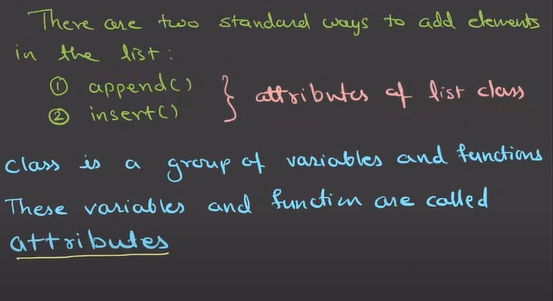 There are two standard ways to add elements
in the list:
① append()
② insert()
} attributes of list class
Class is a group of variables and functions
These variables and function are called
attributes